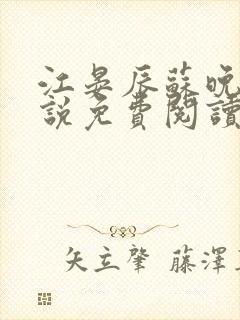 江晏辰蘇晚
説免費閱讀
矢立肇 藤澤